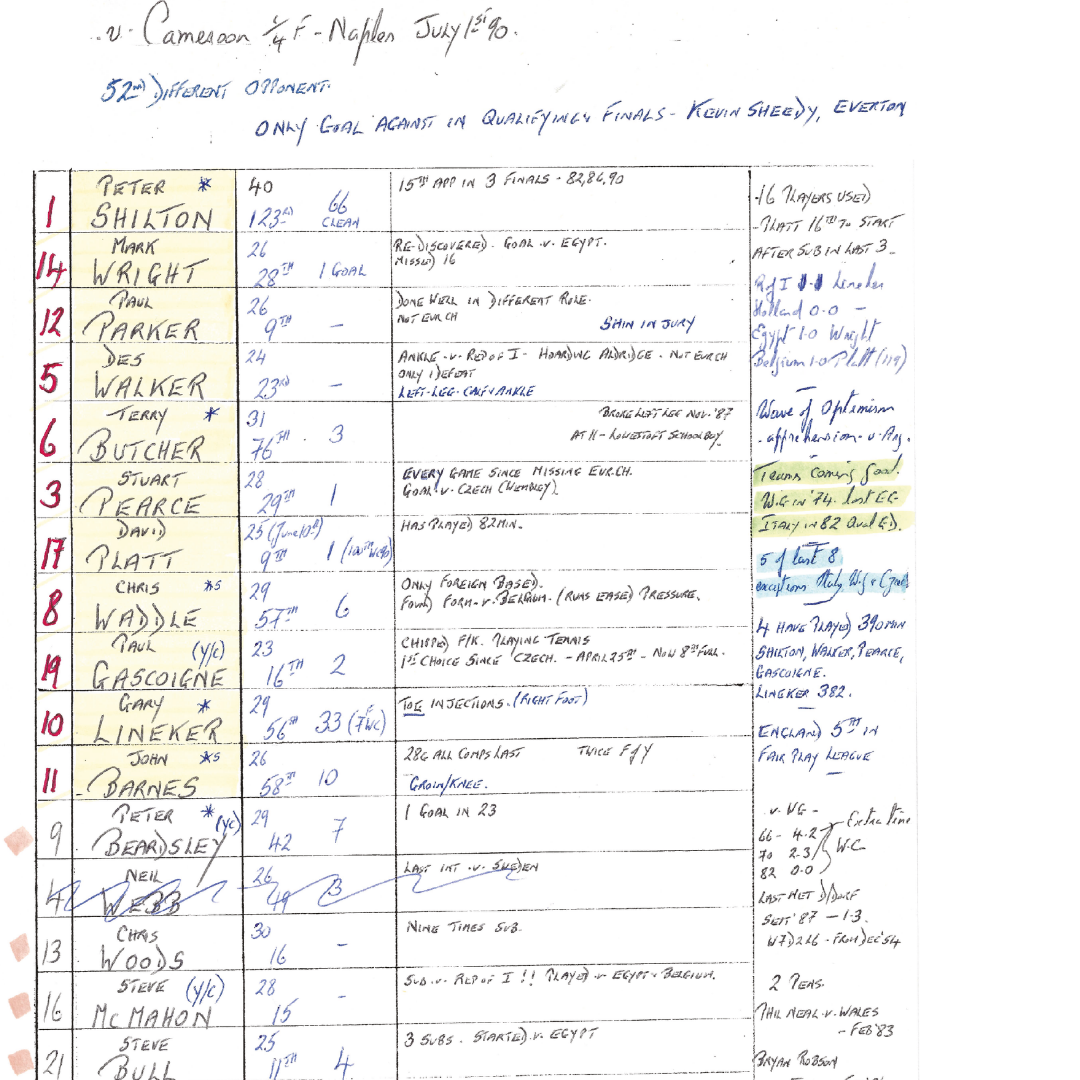 v. Cameroon 1/4 F - Naples July 1st 90.
52ND DIFFERENT OPPONENT.
ONLY GOAL AGAINST IN QUALIFYING + FINALS - KEVIN SHEEDY, EVERTON
1 PETER * 40 15TH APP IN 3 FINALS - 82,86,90
SHILTON 123RD 66 CLEAN
14 MARK 26 RE-DISCOVERED. GOAL .v. EGYPT.
WRIGHT 28TH 1 GOAL MISSED 16
12 PAUL 26 DONE WELL IN DIFFERENT ROLE.
PARKER 9TH - NOT EUR CH SHIN INJURY
5 DES 24 ANKLE .v. REP OF I - HOARDING ALDRIDGE. NOT EUR CH
WALKER 23RD - ONLY 1 DEFEAT
LEFT-LEG-CALF+ANKLE
6 TERRY * 31 BROKE LEFT LEG NOV. '87
BUTCHER 76TH . 3 AT 11 - LOWESTOFT SCHOOLBOY
3 STUART 28 EVERY GAME SINCE MISSING EUR.CH.
PEARCE 29TH 1 GOAL .v. CZECH (WEMBLEY).
17 DAVID 25 (June 10th) HAS PLAYED 82MIN.
PLATT 9TH 1 (100TH WC90)
8 CHRIS *S 29 ONLY FOREIGN BASED.
WADDLE 57TH 6 FOUND FORM .v. BELGIUM. (RUNS EASED) PRESSURE.
19 PAUL (Y/C) 23 CHIPPED F/K. PLAYING TENNIS
GASCOIGNE 16TH 2 1ST CHOICE SINCE CZECH. - APRIL 25TH - NOW 8TH FULL.
10 GARY * 29 TOE INJECTIONS. (RIGHT FOOT)
LINEKER 56TH 33 (7 F WC)
11 JOHN *S 26 28G ALL COMPS LAST TWICE F of Y
BARNES 58TH 10 GROIN/KNEE.
9 PETER * (YC) 29 1 GOAL IN 23
BEARDSLEY 42 7
4 NEIL 26 LAST INT .v. SWEDEN
WEBB 49 3
13 CHRIS 30 NINE TIMES SUB.
WOODS 16 -
16 STEVE (Y/C) 28 SUB .v. REP OF I !! PLAYED v EGYPT + BELGIUM.
McMAHON 15 -
21 STEVE 25 3 SUBS. STARTED .v. EGYPT
BULL 11TH 4
-16 PLAYERS USED
- PLATT 16TH TO START
AFTER SUB IN LAST 3.
R of I 1.1 Lineker
Holland 0.0 -
Egypt 1.0 Wright
Belgium 1.0 Platt (119)
Wave of Optimism
- apprehension - v. Arg.
Teams coming good.
W.G in '74. lost EG
ITALY IN 82
5 of last 8
exceptions Italy, W.G +
4 HAVE PLAYED 390MIN
SHILTON, WALKER, PEARCE,
GASCOIGNE.
LINEKER 382.
ENGLAND 5TH IN
FAIR PLAY LEAGUE
.v. WG -
66 - 4.2 Extra time
70 2.3 W.C
82 0.0
LAST MET D/DORF
SEPT '87 - 1-3.
W7 D2 L6 - FROM DEC '54
2 PENS.
PHIL NEAL .v. WALES
- FEB '83
BRYAN ROBSON